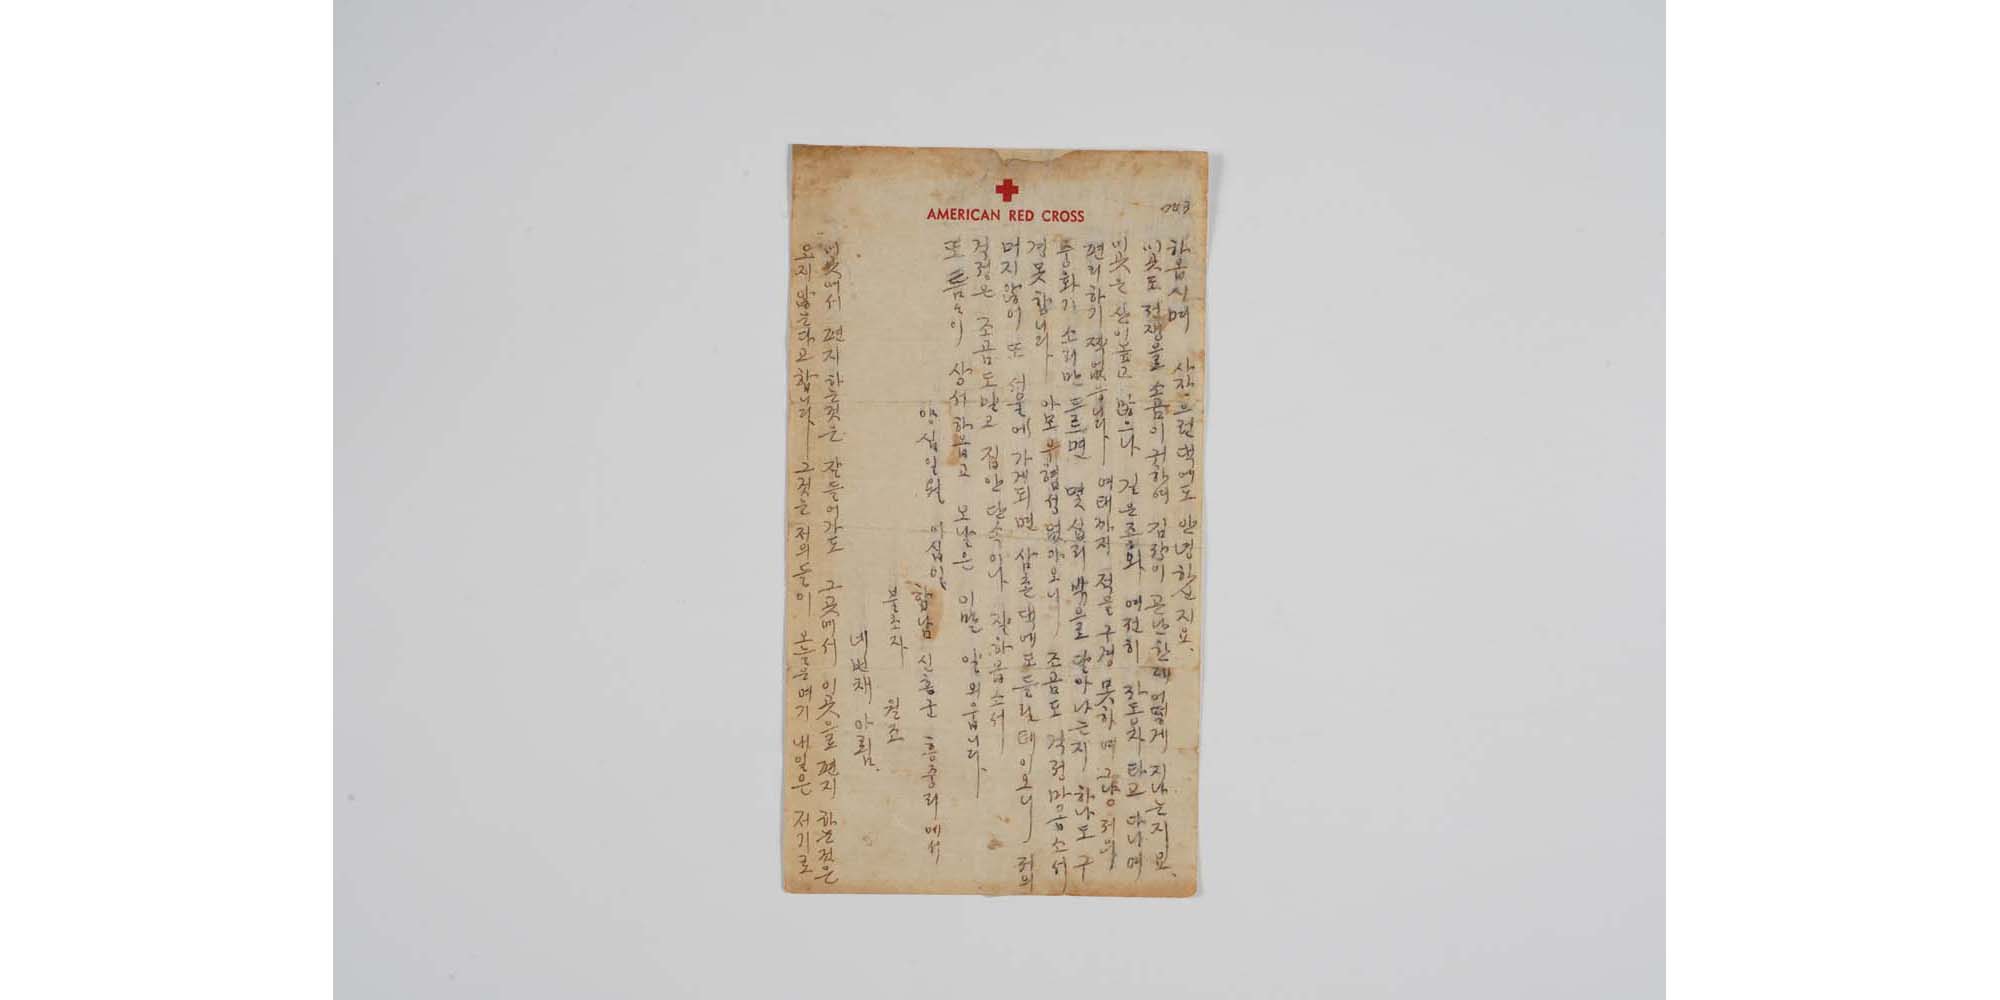 AMERICAN RED CROSS
하옵시며 사장으런댁에도 안녕하신지요.
이곳도 전쟁으로 소곰이 귀하여 김장이 곤난한데 어떻게 지나는지요.
이곳은 산이높고 많으나 길은조흐와 여전히 자동차 타고 다니며
편리하기 짝없읍니다. 여태까지 적을 구경 못하며 그냥 저의
중화기 소리만 드르면 몇 십리 박으로 달아나는지 하나도 구
경 못합니다. 아모 위협성 없아오니 조곰도 걱정 마옵소서
머지않어 또 서울에 가게되면 삼춘댁에도 들릴터이오니 저의
걱정은 조곰도말고 집안 단속이나 잘하옵소서
또 틈틈이 상서 하옵고 오날은 이만 알외웁니다.
양 십일월 이십일
함남 신흥군 흥중리에서
불초자 월조
네번채 아룀.
이곳에서 편지하는것은 잘들어가도 그곳에서 이곳으로 편지 하는것은
오지 않는다고 합니다. 그것은 저의들이 오늘은 여기 내일은 저기로